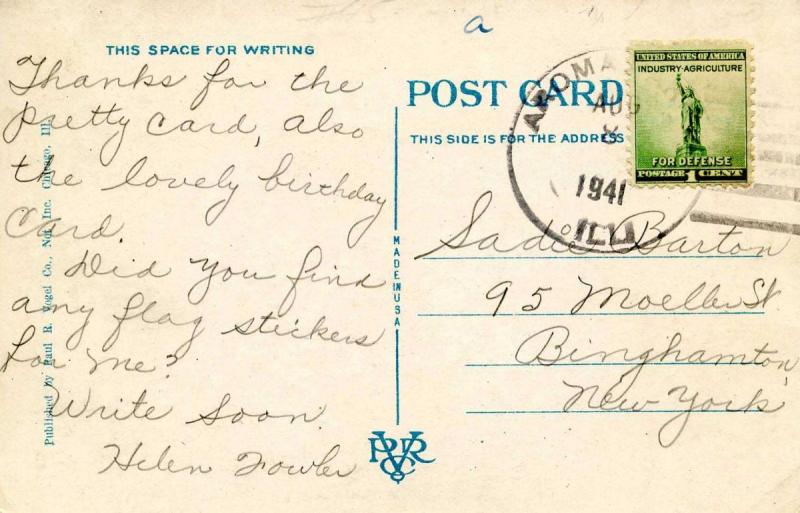 a
THIS SPACE FOR WRITING
Thanks for the
pretty card, also
the lovely birthday
card.
Did you find
any flag stickers
for me?
Write Soon.
Helen Fowler
Published by Paul R. Vogel Co., Not Inc. Chicago, Ill.
MADE IN USA
POST CARD
THIS SIDE IS FOR THE ADDRESS
AROMA
AUG
8
1941
ILL
UNITED STATES OF AMERICA
INDUSTRY-AGRICULTURE
FOR DEFENSE
POSTAGE 1 CENT
Sadie Barton
95 Moeller St.
Binghamton,
New York